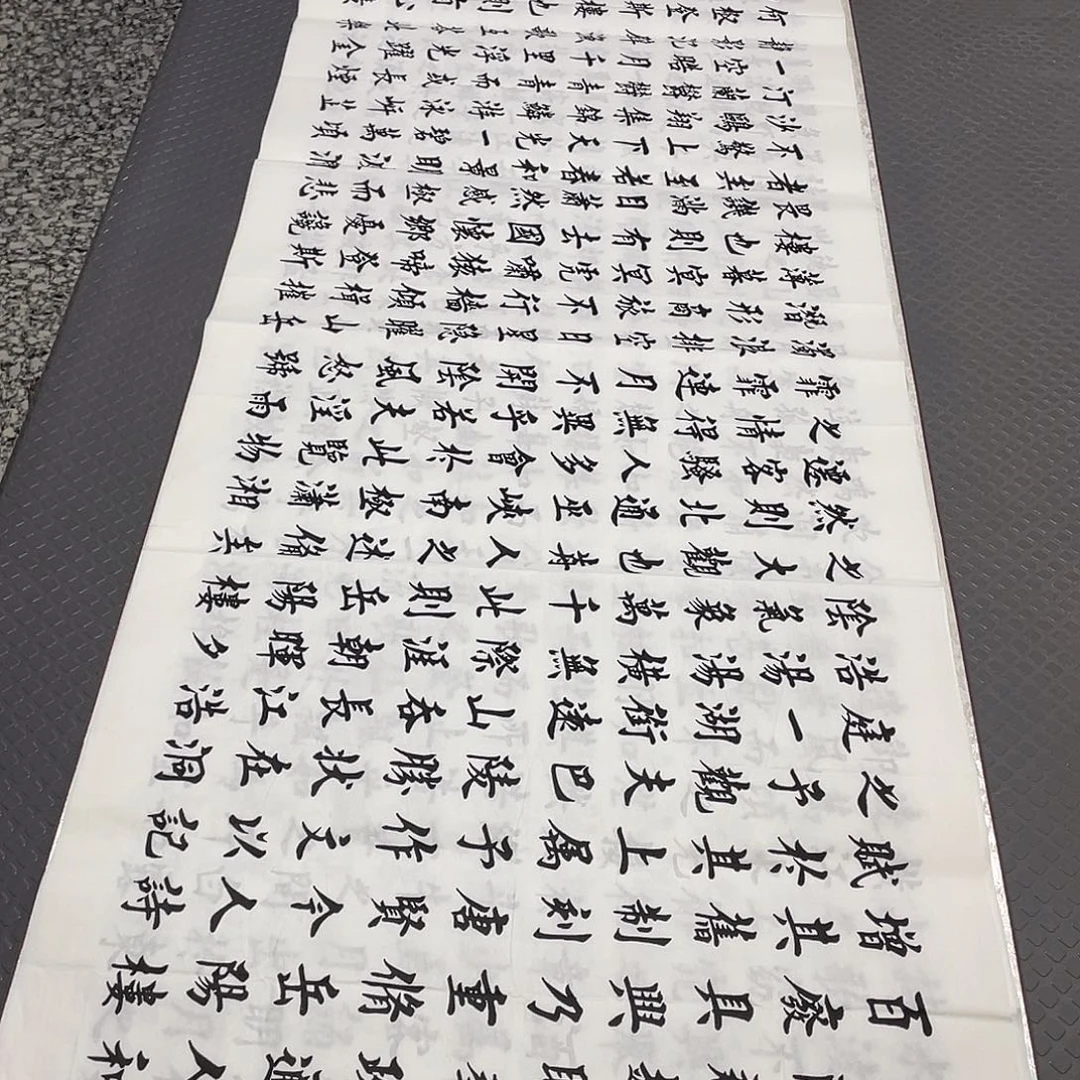 政通人和
百廢具興乃重脩岳陽樓
增其舊制刻唐賢今人詩
賦於其上屬予作文以記
之予觀夫巴陵勝狀在洞
庭一湖銜遠山吞長江浩
浩湯湯橫無際涯朝暉夕
陰氣象萬千此則岳陽樓
之大觀也前人之述備矣
然則北通巫峽南極瀟湘
遷客騷人多會於此覽物
之情得無異乎若夫淫雨
霏霏連月不開陰風怒號
濁浪排空日星隱曜山岳
潛形商旅不行檣傾楫摧
薄暮冥冥虎嘯猿啼登斯
樓也則有去國懷鄉憂讒
畏譏滿目蕭然感極而悲
者矣至若春和景明波瀾
不驚上下天光一碧萬頃
沙鷗翔集錦鱗游泳岸芷
汀蘭鬱鬱青青而或長煙
一空皓月千里浮光躍金
靜影沉璧漁歌互答此樂
何極登斯樓也則有心